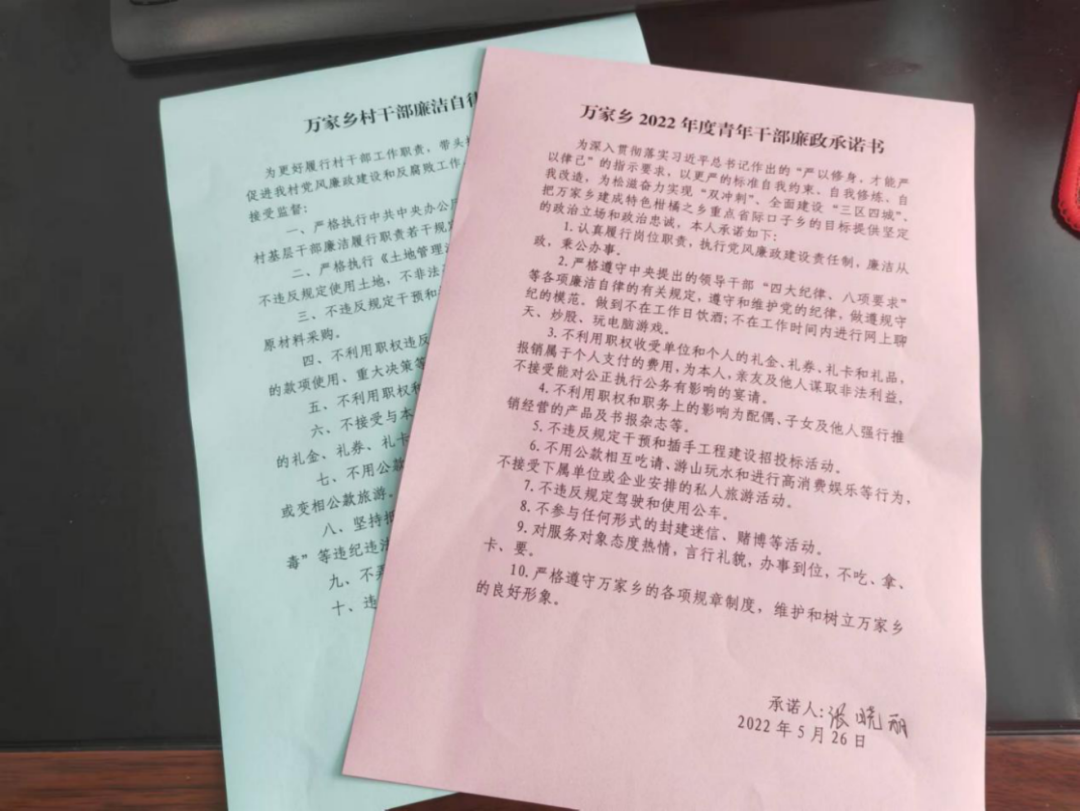 万家乡村干部廉洁自律
为更好履行村干部工作职责，带头
促进我村党风廉政建设和反腐败工作
接受监督：
一、严格执行中共中央办公厅
村基层干部廉洁履行职责若干规定
二、严格执行《土地管理
不违反规定使用土地，不非法
三、不违反规定干预和
原材料采购。
四、不利用职权违反
的款项使用、重大决策等
五、不利用职权和
六、不接受与本
的礼金、礼券、礼卡
七、不用公款
或变相公款旅游。
八、坚持
毒”等违纪违法
九、不弄
十、违
万家乡 2022 年度青年干部廉政承诺书
为深入贯彻落实习近平总书记作出的“严以修身，才能严
以律己”的指示要求，以更严的标准自我约束、自我修炼、自
我改造，为松滋奋力实现“双冲刺”、全面建设“三区四城”、
把万家乡建成特色柑橘之乡重点省际口子乡的目标提供坚定
的政治立场和政治忠诚，本人承诺如下：
1.认真履行岗位职责，执行党风廉政建设责任制，廉洁从
政，秉公办事。
2.严格遵守中央提出的领导干部“四大纪律、八项要求”
等各项廉洁自律的有关规定，遵守和维护党的纪律，做遵规守
纪的模范。做到不在工作日饮酒;不在工作时间内进行网上聊
天、炒股、玩电脑游戏。
3.不利用职权收受单位和个人的礼金、礼券、礼卡和礼品，
报销属于个人支付的费用，为本人，亲友及他人谋取非法利益，
不接受能对公正执行公务有影响的宴请。
4.不利用职权和职务上的影响为配偶、子女及他人强行推
销经营的产品及书报杂志等。
5.不违反规定干预和插手工程建设招投标活动。
6.不用公款相互吃请、游山玩水和进行高消费娱乐等行为、
不接受下属单位或企业安排的私人旅游活动。
7.不违反规定驾驶和使用公车。
8.不参与任何形式的封建迷信、赌博等活动。
9.对服务对象态度热情，言行礼貌，办事到位，不吃、拿、
卡、要。
10.严格遵守万家乡的各项规章制度，维护和树立万家乡
的良好形象。
承诺人:张晓丽
2022 年 5 月 26 日